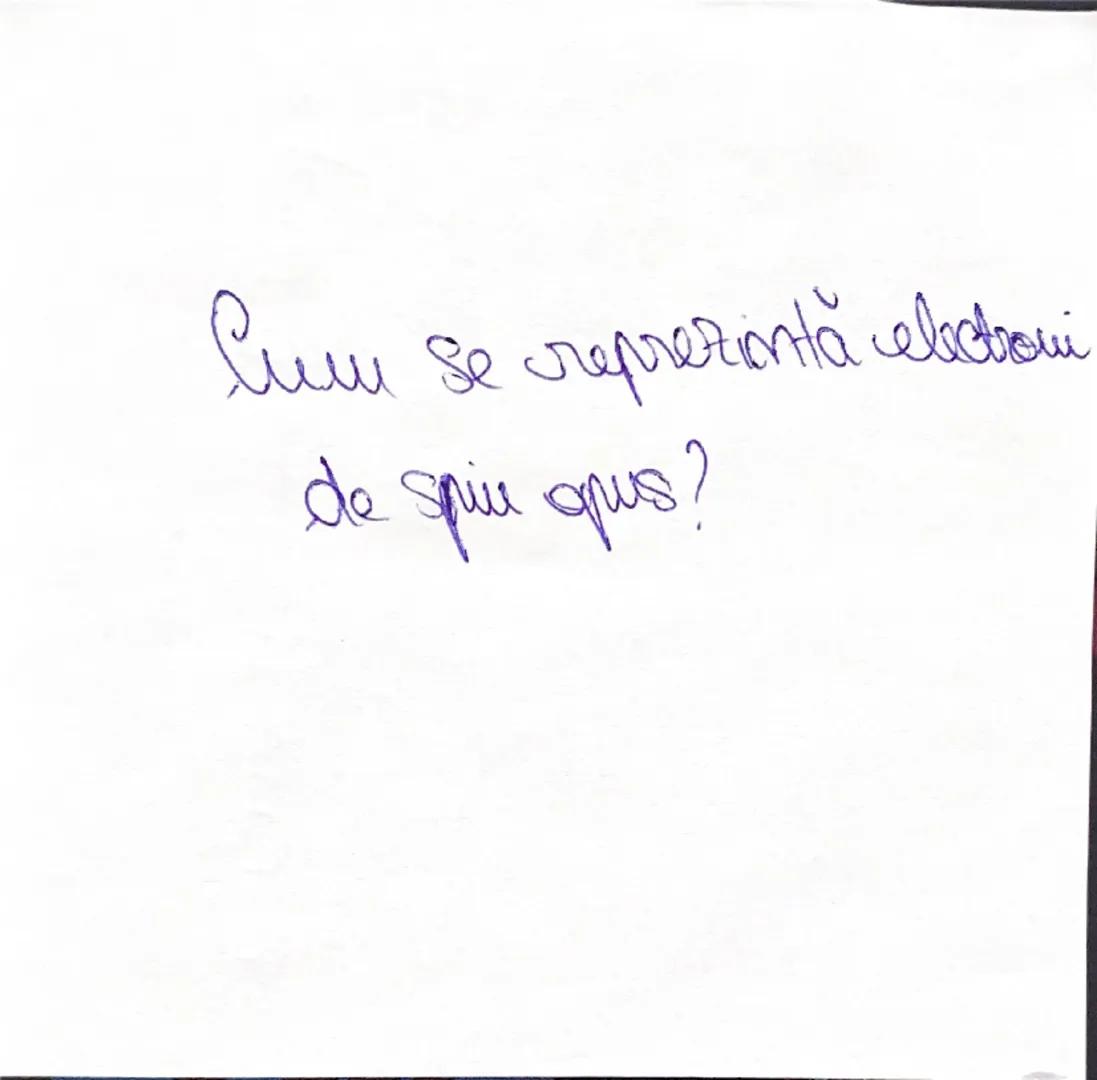 Cum se reprezintă electroni
de spin opus?